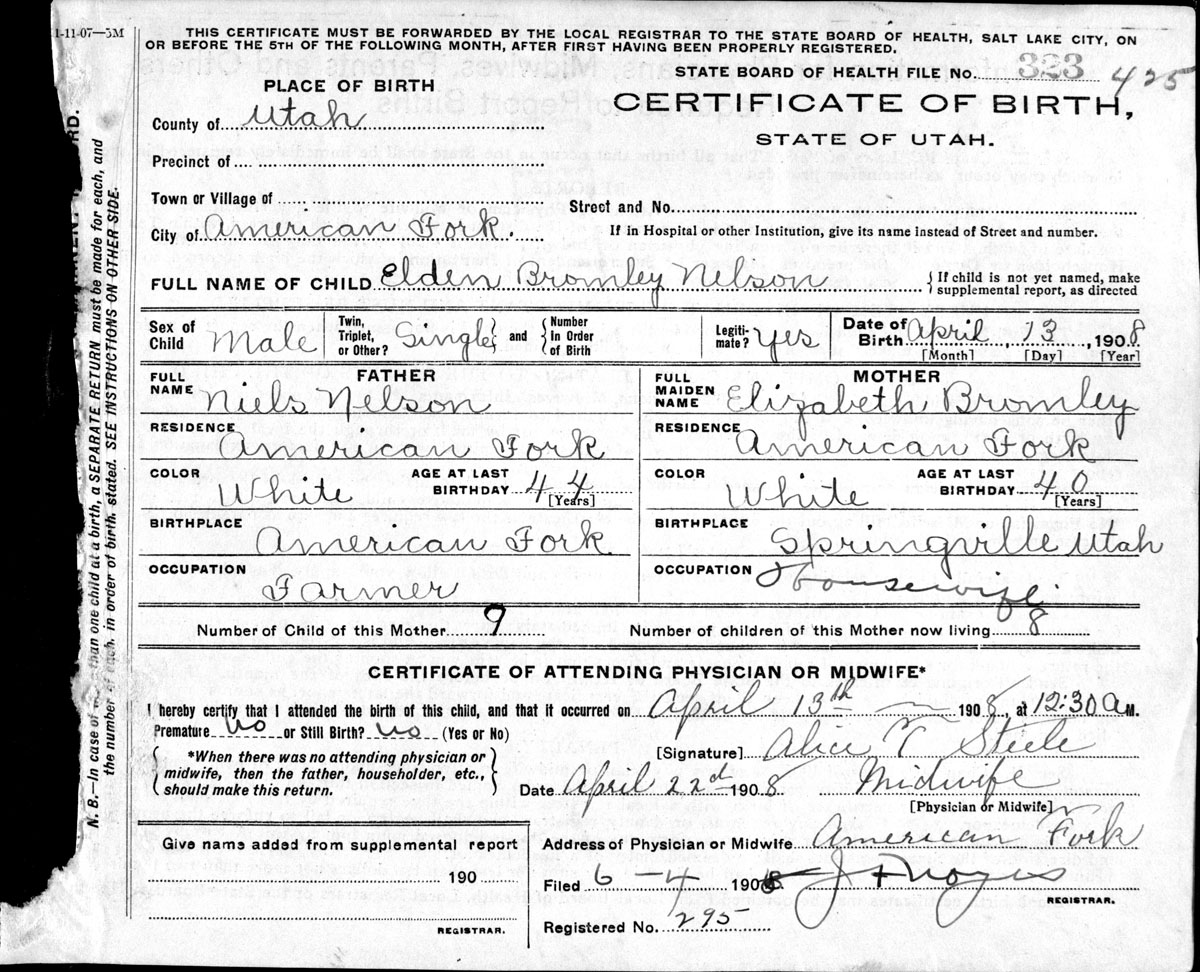 1-11-07—5M
THIS CERTIFICATE MUST BE FORWARDED BY THE LOCAL REGISTRAR TO THE STATE BOARD OF HEALTH, SALT LAKE CITY, ON
OR BEFORE THE 5TH OF THE FOLLOWING MONTH, AFTER FIRST HAVING BEEN PROPERLY REGISTERED.
STATE BOARD OF HEALTH FILE No. 323 425
PLACE OF BIRTH
CERTIFICATE OF BIRTH,
STATE OF UTAH.
County of Utah
Precinct of
Town or Village of
Street and No.
City of American Fork.
If in Hospital or other Institution, give its name instead of Street and number.
FULL NAME OF CHILD Elden Bromley Nelson
{If child is not yet named, make
supplemental report, as directed
Sex of
Child Male
Twin,
Triplet,
or Other? Single
and
Number
In Order
of Birth
Legiti-
mate? Yes
Date of
Birth April, 13, 1908
[Month] [Day] [Year]
FATHER
FULL
NAME Niels Nelson
RESIDENCE
American Fork
COLOR
White
AGE AT LAST
BIRTHDAY 44
[Years]
BIRTHPLACE
American Fork
OCCUPATION
Farmer
MOTHER
FULL
MAIDEN
NAME Elizabeth Bromley
RESIDENCE
American Fork
COLOR
White
AGE AT LAST
BIRTHDAY 40
[Years]
BIRTHPLACE
Springville Utah
OCCUPATION
Housewife
Number of Child of this Mother 9
Number of children of this Mother now living 8
CERTIFICATE OF ATTENDING PHYSICIAN OR MIDWIFE*
I hereby certify that I attended the birth of this child, and that it occurred on April 13th 1908, at 12.30 a M.
Premature No or Still Birth? No (Yes or No)
[Signature] Alice T Steele
*When there was no attending physician or
midwife, then the father, householder, etc.,
should make this return.
Date April 22d 1908 Midwife
[Physician or Midwife]
Address of Physician or Midwife American Fork
Give name added from supplemental report
190
REGISTRAR.
Filed 6-4 1908
REGISTRAR.
Registered No. 295
N. B.—In case of than one child at a birth, a SEPARATE RETURN must be made for each, and
the number of each, in order of birth, stated. SEE INSTRUCTIONS ON OTHER SIDE.